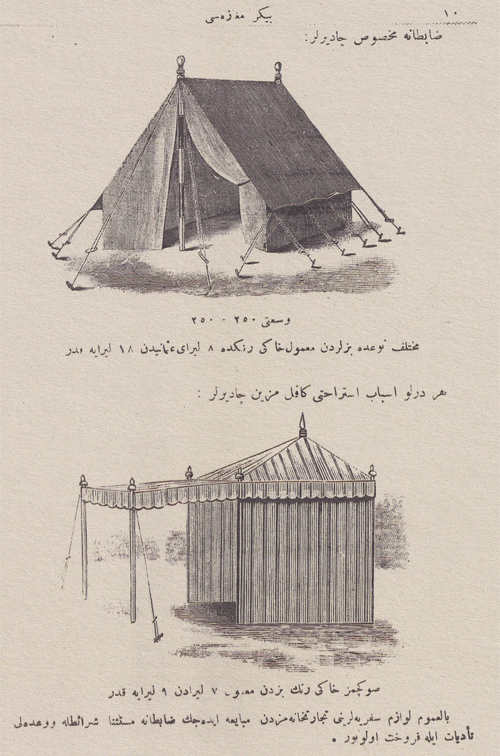 ١٠
بيكر مغازه‌سى
ضابطانه مخصوص چاديرلر :
وسعتى ٢٥٠ - ٣٥٠
مختلف نوعده بزلردن معمول خاكى رنكده ٨ ليراى عثمانيدن ١٨ ليرايه قدر
هر درلو اسباب استراحتى كافل مزين چاديرلر :
صو كچمز خاكى رنك بزدن معمول ٧ ليرادن ٩ ليرايه قدر
بالعموم لوازم سفريه‌لرينى تجارتخانه‌مزدن مبايعه ايده‌جك ضابطانه مستثنا شرائطله ووعده‌لى
تأديات ايله فروخت اولنور .